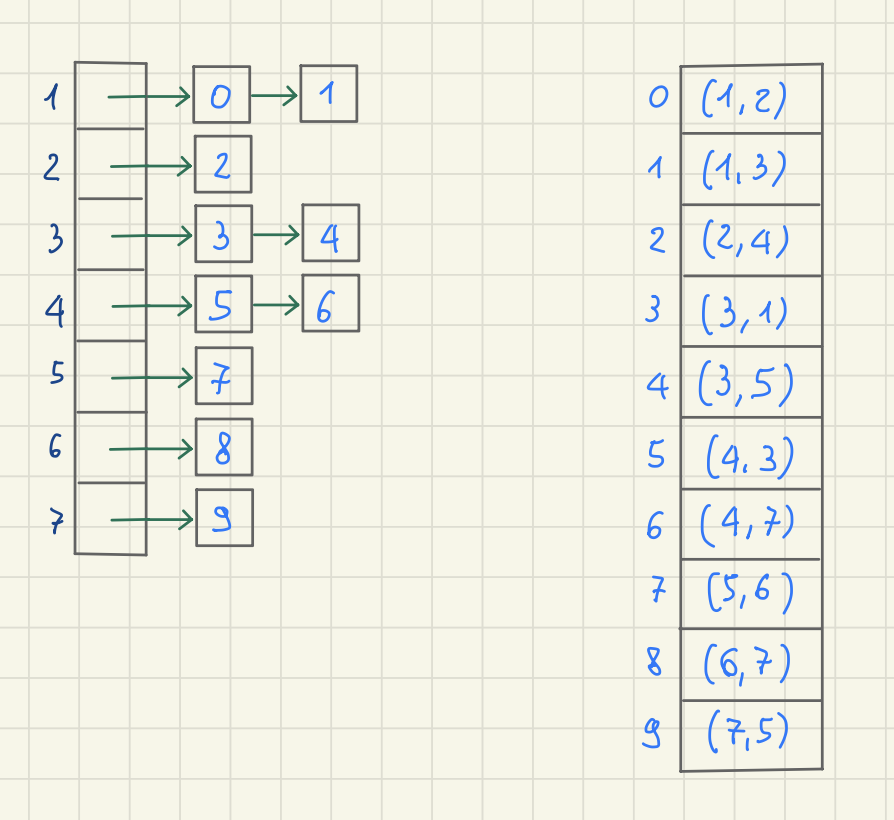 1 0 1
2 2
3 3 4
4 5 6
5 7
6 8
7 9
0 (1,2)
1 (1,3)
2 (2,4)
3 (3,1)
4 (3,5)
5 (4,3)
6 (4,7)
7 (5,6)
8 (6,7)
9 (7,5)